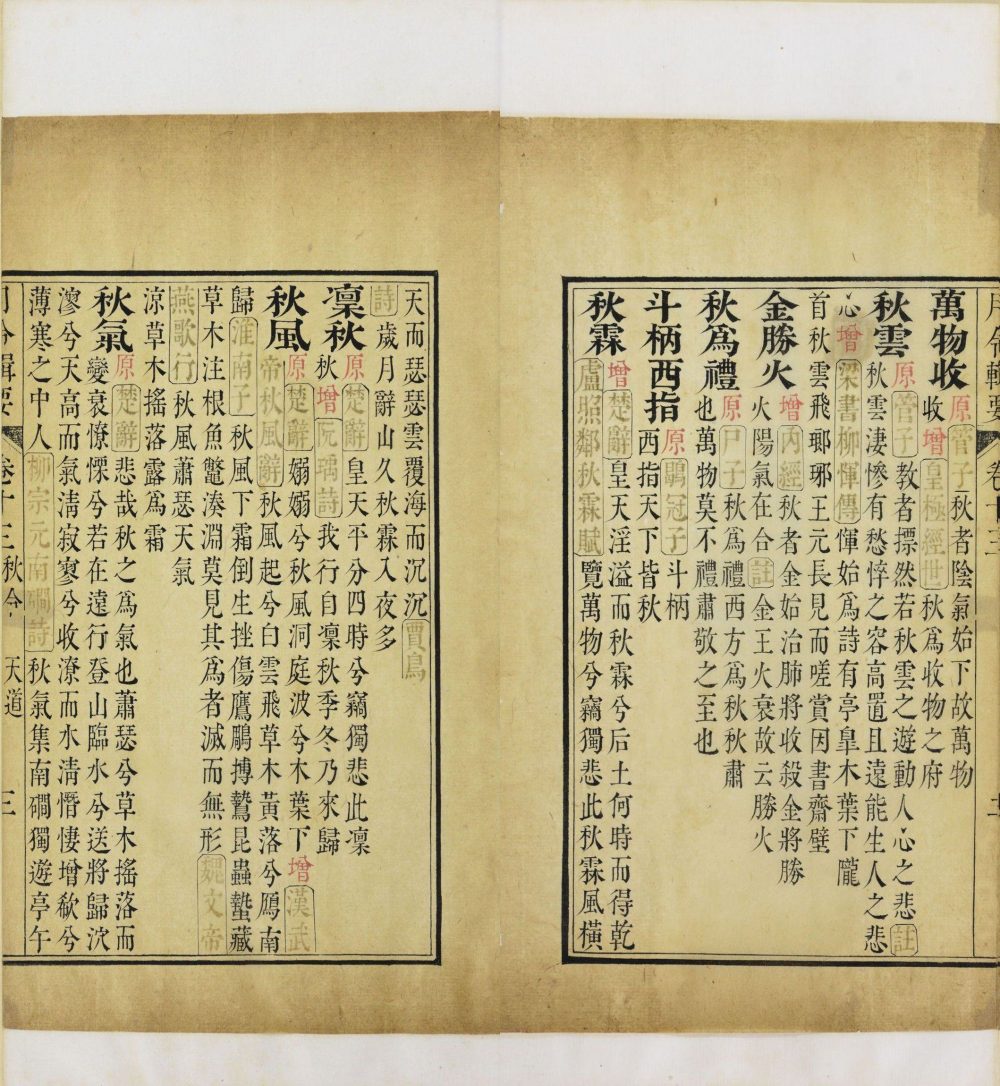 萬物收
原管子秋者陰氣始下故萬物
收增皇極經世秋爲收物之府
秋雲
原管子教者摽然若秋雲之遊動人心之悲註
秋雲凄慘有愁悴之容高置且遠能生人之悲
心增梁書柳惲傳惲始爲詩有亭臯木葉下隴
首秋雲飛瑯琊王元長見而嗟賞因書齋壁
金勝火
增內經秋者金始治肺將收殺金將勝
火陽氣在合註金王火衰故云勝火
秋爲禮
原尸子秋爲禮西方爲秋秋肅
也萬物莫不禮肅敬之至也
斗柄西指
原鶡冠子斗柄
西指天下皆秋
秋霖
增楚辭皇天淫溢而秋霖兮后土何時而得乾
盧照鄰秋霖賦覽萬物兮竊獨悲此秋霖風橫
天而瑟瑟雲覆海而沉沉賈島
詩歲月辭山久秋霖入夜多
凛秋
原楚辭皇天平分四時兮竊獨悲此凛
秋增阮瑀詩我行自凛秋季冬乃來歸
秋風
原楚辭嫋嫋兮秋風洞庭波兮木葉下增漢武
帝秋風辭秋風起兮白雲飛草木黃落兮鴈南
歸淮南子秋風下霜倒生挫傷鷹鵰搏鷙昆蟲蟄藏
草木注根魚鼈湊淵莫見其爲者滅而無形魏文帝
燕歌行秋風蕭瑟天氣
涼草木搖落露爲霜
秋氣
原楚辭悲哉秋之爲氣也蕭瑟兮草木搖落而
變衰憭慄兮若在遠行登山臨水兮送將歸泬
漻兮天高而氣淸寂寥兮收潦而水淸憯悽增欷兮
薄寒之中人柳宗元南磵詩秋氣集南磵獨遊亭午
月令輯要 卷十三 秋令 天道 三